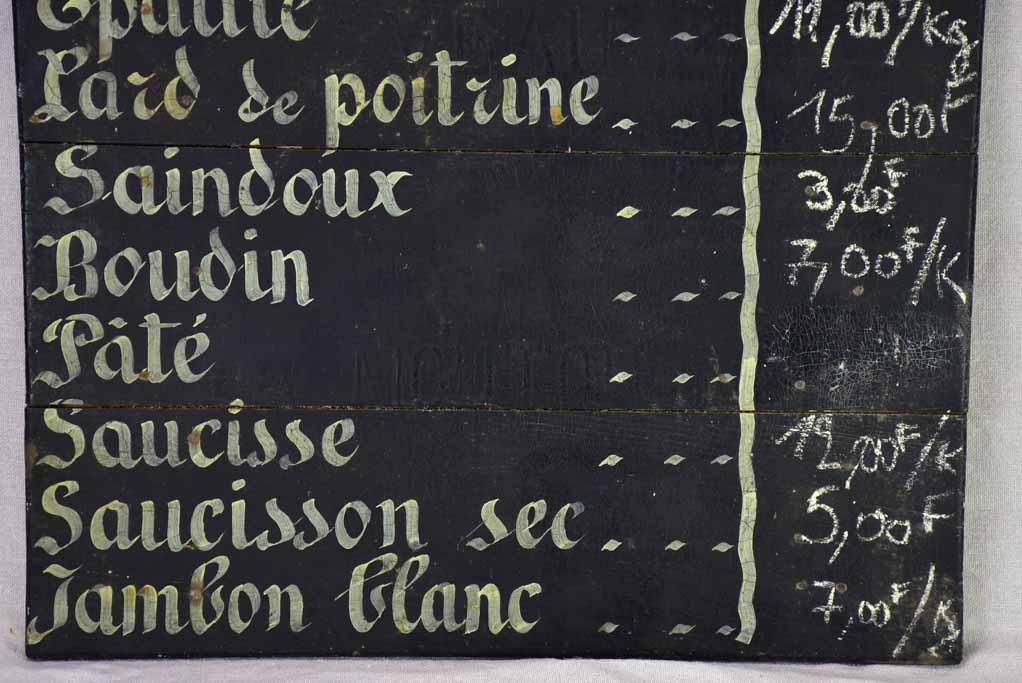 Épaule 11,00F/Kg
Lard de poitrine 15,00F
Saindoux 3,00F
Boudin 7,00F/K
Pâté
Saucisse 12,00F/K
Saucisson sec 5,00F
Jambon blanc 7,00F/K